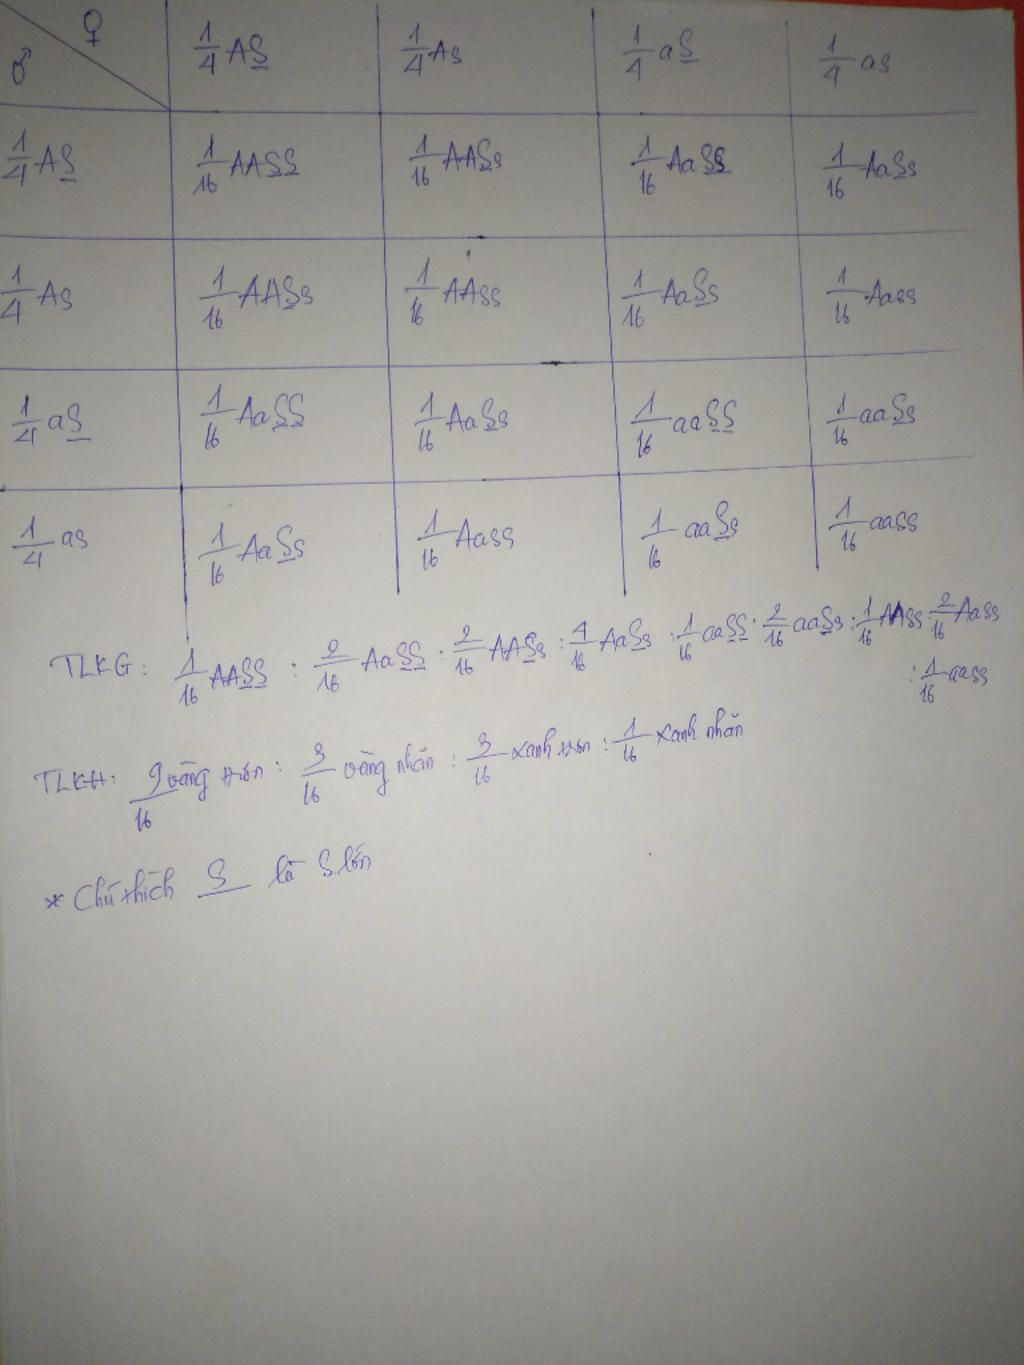 ♀ 1/4 AS 1/4 As 1/4 aS 1/4 as
♂
1/4 AS 1/16 AASS 1/16 AASs 1/16 AaSS 1/16 AaSs
1/4 As 1/16 AASs 1/16 AAss 1/16 AaSs 1/16 Aass
1/4 aS 1/16 AaSS 1/16 AaSs 1/16 aaSS 1/16 aaSs
1/4 as 1/16 AaSs 1/16 Aass 1/16 aaSs 1/16 aass
TLKG: 1/16 AASS : 2/16 AaSS : 2/16 AASs : 4/16 AaSs : 1/16 aaSS : 2/16 aaSs : 1/16 AAss : 2/16 Aass
: 1/16 aass
TLKH: 9/16 vàng trơn : 3/16 vàng nhăn : 3/16 xanh trơn : 1/16 xanh nhăn
* Chú thích S là S lớn